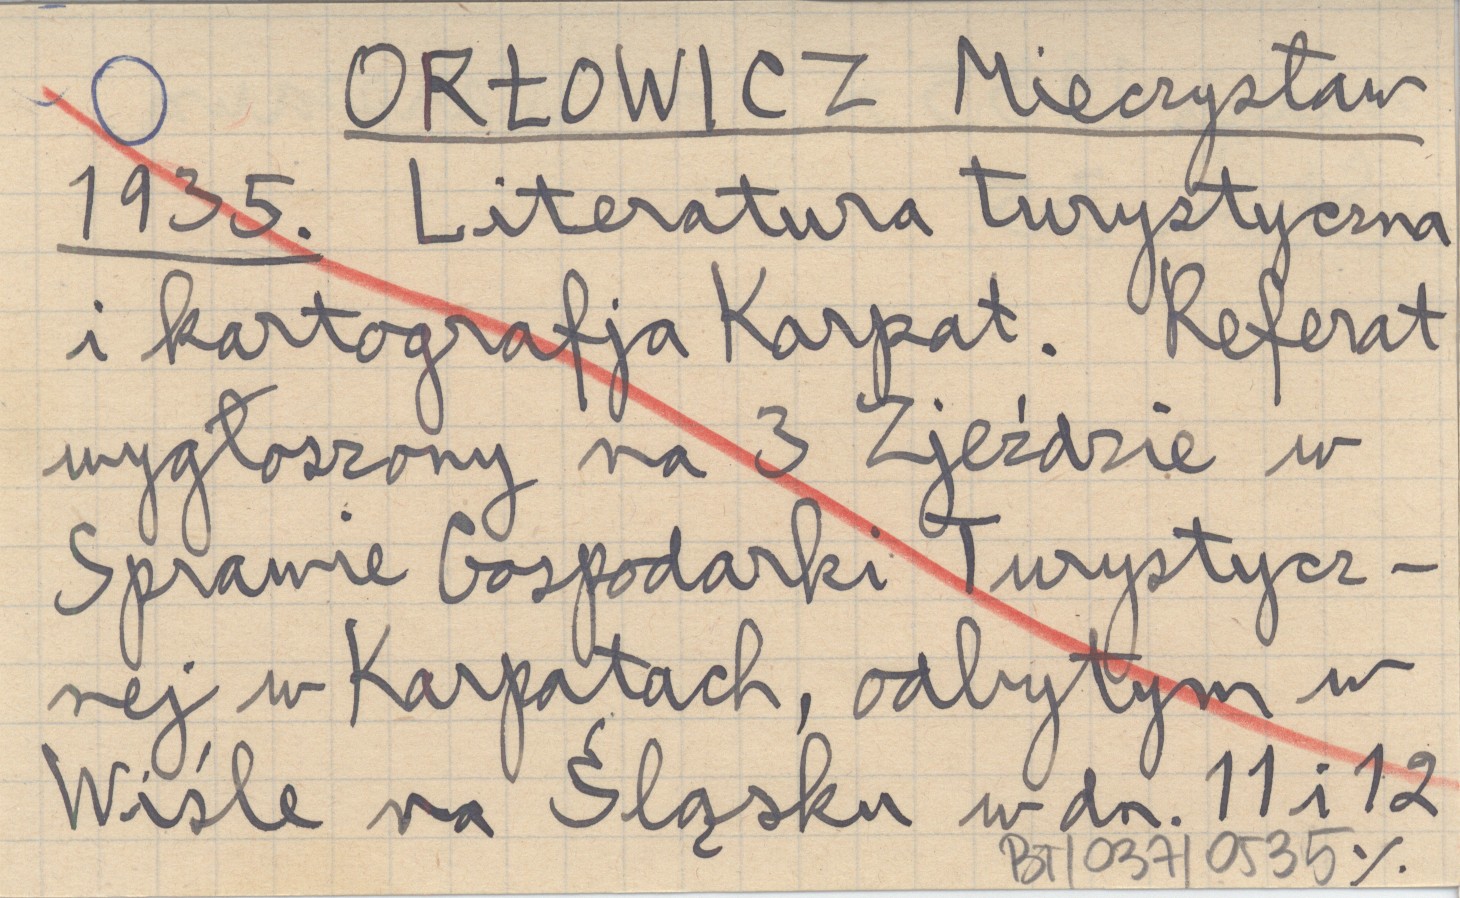 O ORŁOWICZ Mieczysław
1935. Literatura turystyczna
i kartografja Karpat. Referat
wygłoszony na 3 Zjeździe w
Sprawie Gospodarki Turystycz-
nej w Karpatach, odbytym w
Wiśle na Śląsku w dn. 11 i 12
BT/037/0535 ./.